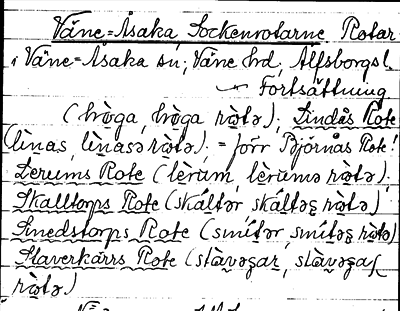 Väne-Åsaka, Sockenrotarne Rotar
i Väne-Åsaka sn, Väne hd, Älfsborgs l.
Fortsättning
(hòga, hòga ròtə); Lindås Rote
(lìnas, lìnasə ròtə); = förr Björnås Rote!
Lerums Rote (lèrum, lèrumə ròtə);
Skalltorps Rote (skáltər skáltəʂ ròtə)
Smedstorps Rote (smítər, smítəʂ ròtə)
Staverkärrs Rote (stàvəʂar, stàvəʂaʂ
ròtə)